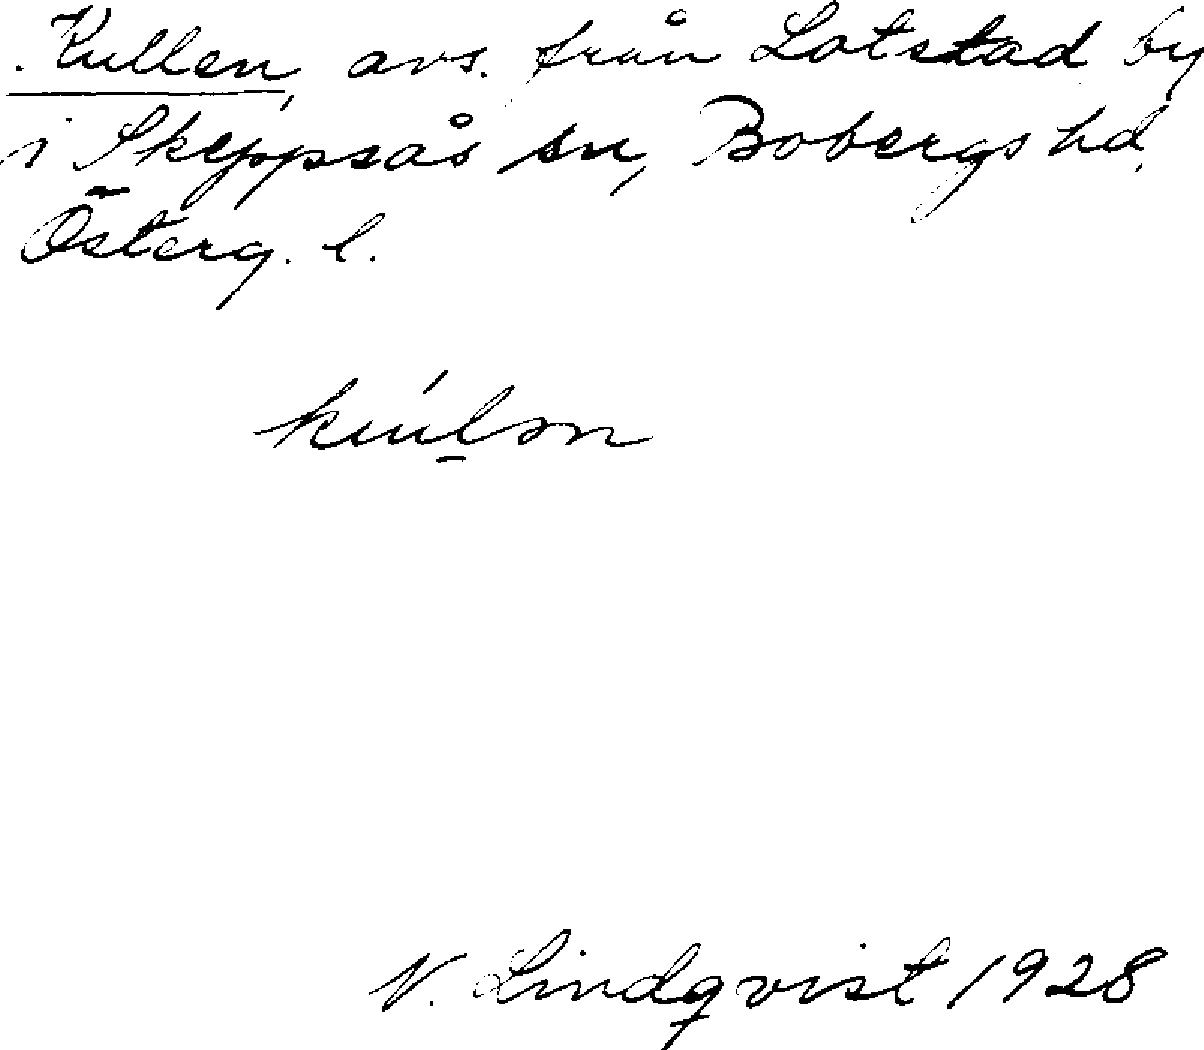 Kullen, avs. från Lotstad by
i Skeppsås sn, Bobergs hd,
Österg. l.
kúl̠ən
N. Lindqvist 1928